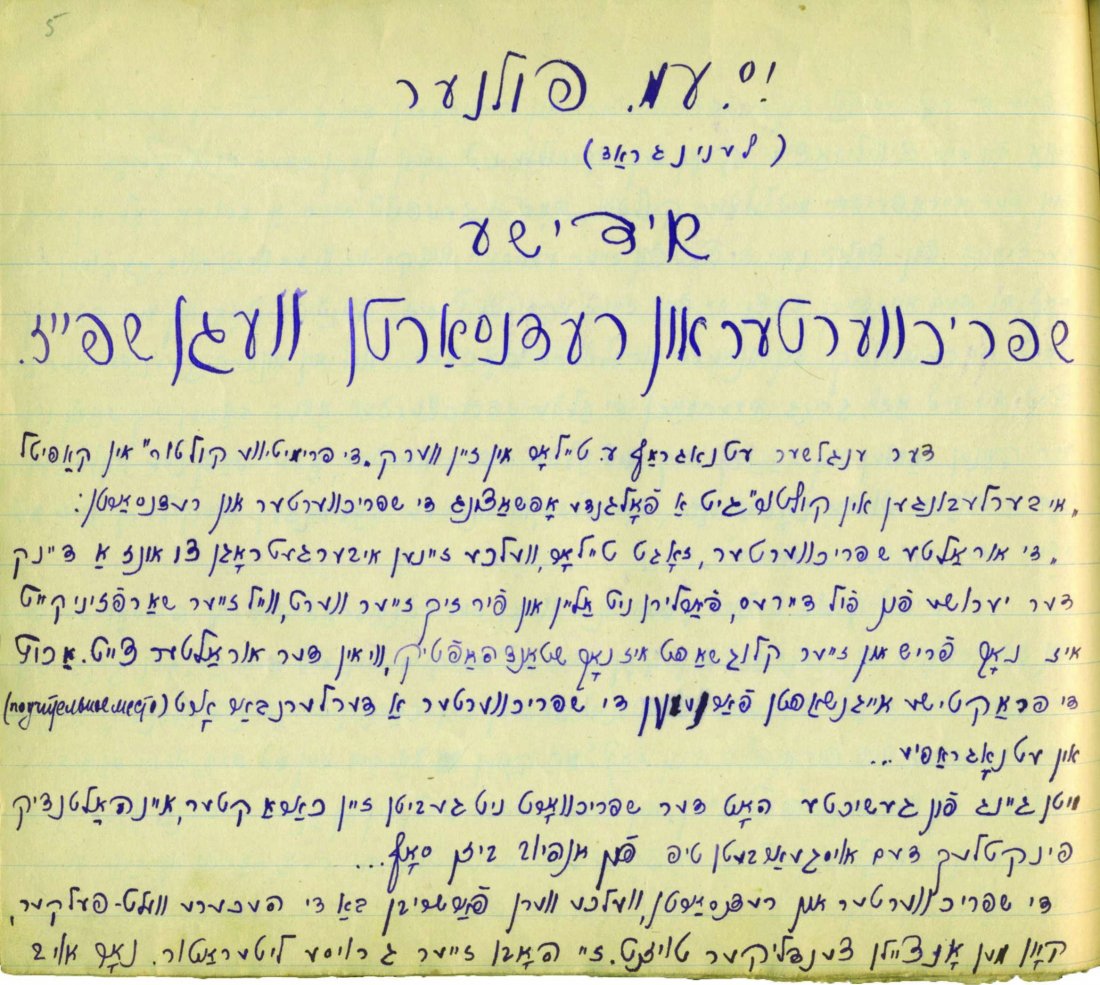 5
י. ס. עמ. פולנער
(לענינגראַד)
אידישע
שפריכווערטער און רעדנסאַרטן וועגן שפּייז.
דער ענגלשער עטנאגראַף ע. טיילאָר אין זיין ווערק „די פרימיטיווע קולטור" אין קאַפיטל
„איבערלעבונגען אין קולטור" גיט אַ פֿאָלגנדע אָפּשאַצונג די שפריכווערטער און רעדנסאַרטן:
„די אוראַלטע שפריכווערטער, זאָגט טיילאָר, וועלכע זיינען איבערגעטראָגן צו אונז אַ דיינק
דער ירושע פֿון פֿיל דוירעס, פֿאַרלירן ניט אַליין און פֿיר זיך זייער ווערט, ווייל זייער שאַרפֿזיניקייט
איז נאָך פֿריש און זייער קלוגשאַפט איז נאָך שטאַנדהאַפֿטיק, ווי אין דער אוראַלטער צייט. אַרוט
די פראַקטישע אייגנשאַפטן פֿאַרנעמען די שפריכווערטער אַ דערלערנבאַר אָרט (поучительное место)
אין עטנאָגראַפיע...
מיטן גיינג פֿון געשיכטע האָט דער שפריכוואָרט ניט געביטן זיין כאַראַקטער, איינהאַלטנדיק
פינקטלעך דעם אויסגעאַרבעטן טיפ פֿון אנפיוב ביזן סאָף...
די שפריכווערטער און רעדנסאַרטן, וועלכע ווערן פֿאַרשריבן באַ די העכערע וועלט-פעלקער,
קאָן מען אָנציילן צענדליקער טויזנט. זיי האָבן זייער גרויסע ליטעראַטור. נאָר אויב